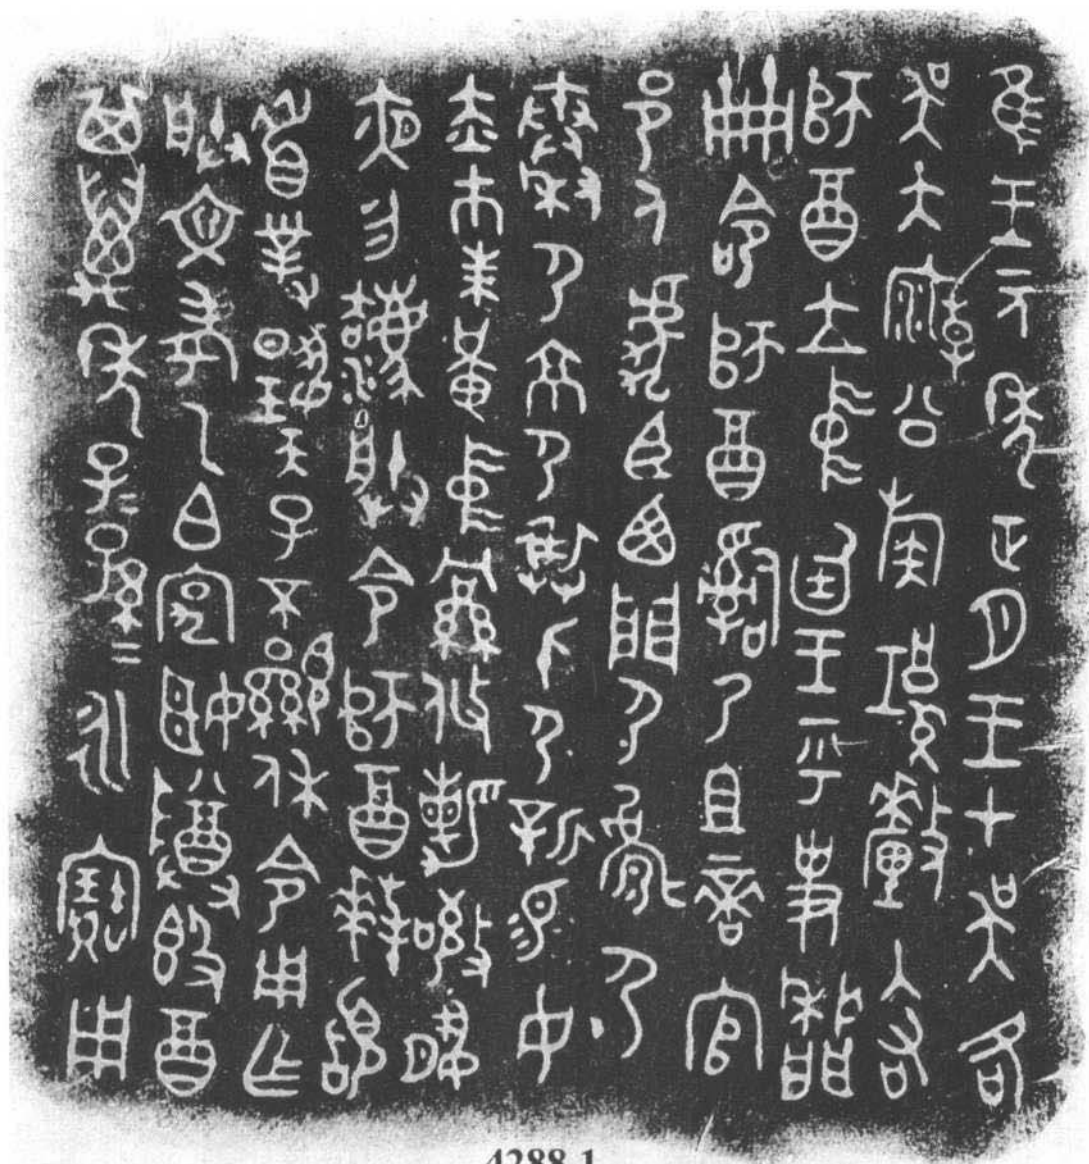 隹王元年正月王才吳各
吳大廟公族𪒠釐入右
師酉立中廷王乎史𤖣
冊命師酉𤔲乃且啻官
邑人虎臣西門尸𩁹尸
秦尸京尸畀身尸新易女
赤巿朱黃中絅攸勒敬夙
夜勿灋朕令師酉拜𩒨
首對揚天子不顯休令用乍
朕文考乙白宄姬尊𣪘酉
其萬年子=孫=永寶用
4288.1